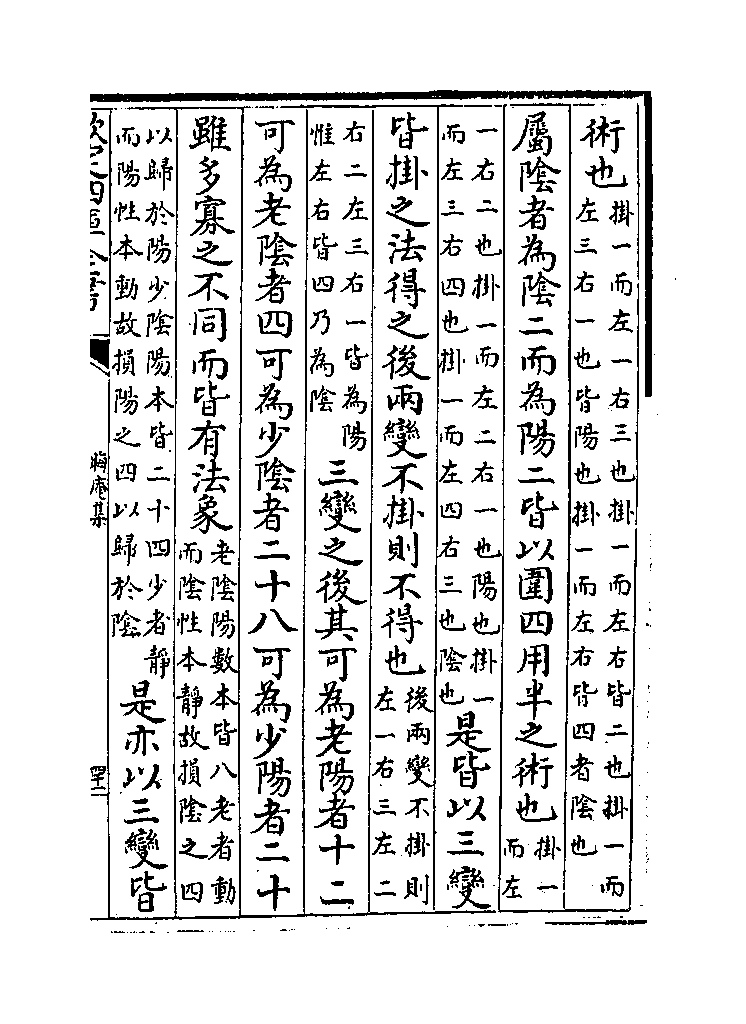 術也掛一而左一右三也掛一而左右皆二也掛一而
左三右一也皆陽也掛一而左右皆四者陰也
屬陰者為陰二而為陽二皆以圍四用半之術也掛一
而左
一右二也掛一而左二右一也陽也掛一
而左三右四也掛一而左四右三也陰也是皆以三變
皆掛之法得之後兩變不掛則不得也後兩變不掛則
左一右三左二
右二左三右一皆為陽
惟左右皆四乃為陰三變之後其可為老陽者十二
可為老陰者四可為少陰者二十八可為少陽者二十
雖多寡之不同而皆有法象老陰陽數本皆八老者動
而陰性本靜故損陰之四
以歸於陽少陰陽本皆二十四少者靜
而陽性本動故損陽之四以歸於陰是亦以三變皆
欽定四庫全書
晦庵集